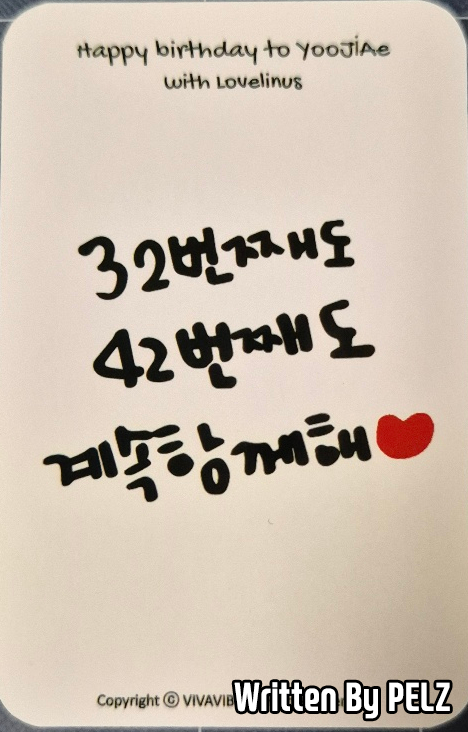 Happy birthday to YooJiAe
with Lovelinus
32번째도
42번째도
계속함께해
Copyright ⓒ
Written By PELZ